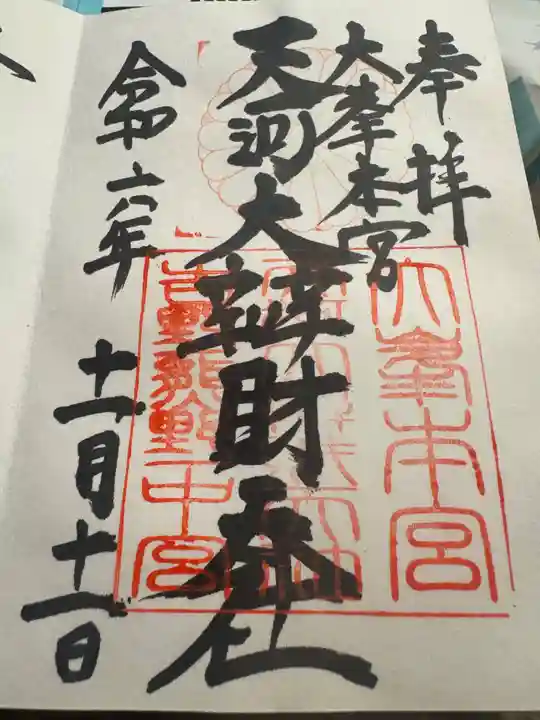 奉拝
大峯本宮
天河大辨財天社
令和六年
十一月十一日
大峯本宮
吉野熊野中宮